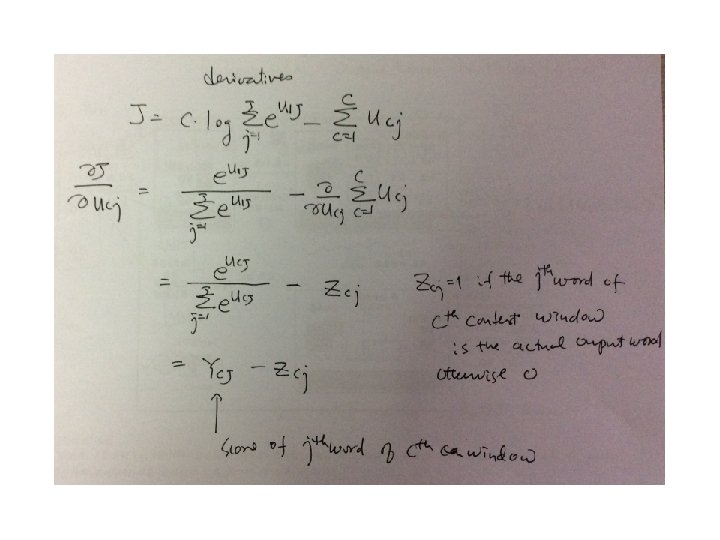 derivatives
J = C. log Σ_{j=1}^{J} e^{u_{1J}} - Σ_{c=1}^{C} u_{cj}
∂J/∂u_{cj} = e^{u_{1J}} / Σ_{j=1}^{J} e^{u_{1J}} - ∂/∂u_{cj} Σ_{c=1}^{C} u_{cj}
= e^{u_{cJ}} / Σ_{j=1}^{J} e^{u_{cJ}} - Z_{cj}
Z_{cj} = 1 if the j^{th} word of
c^{th} context window
is the actual output word
otherwise 0
= Y_{cJ} - Z_{cj}
↑
score of j^{th} word of c^{th} window